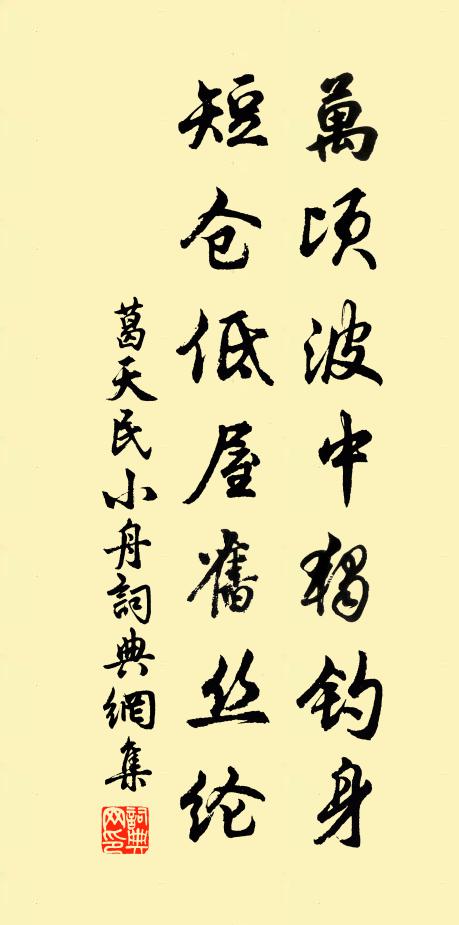 萬頃波中獨钓身
短仓低屋舊丝纶
葛天民小舟詞典網集
詞典网印